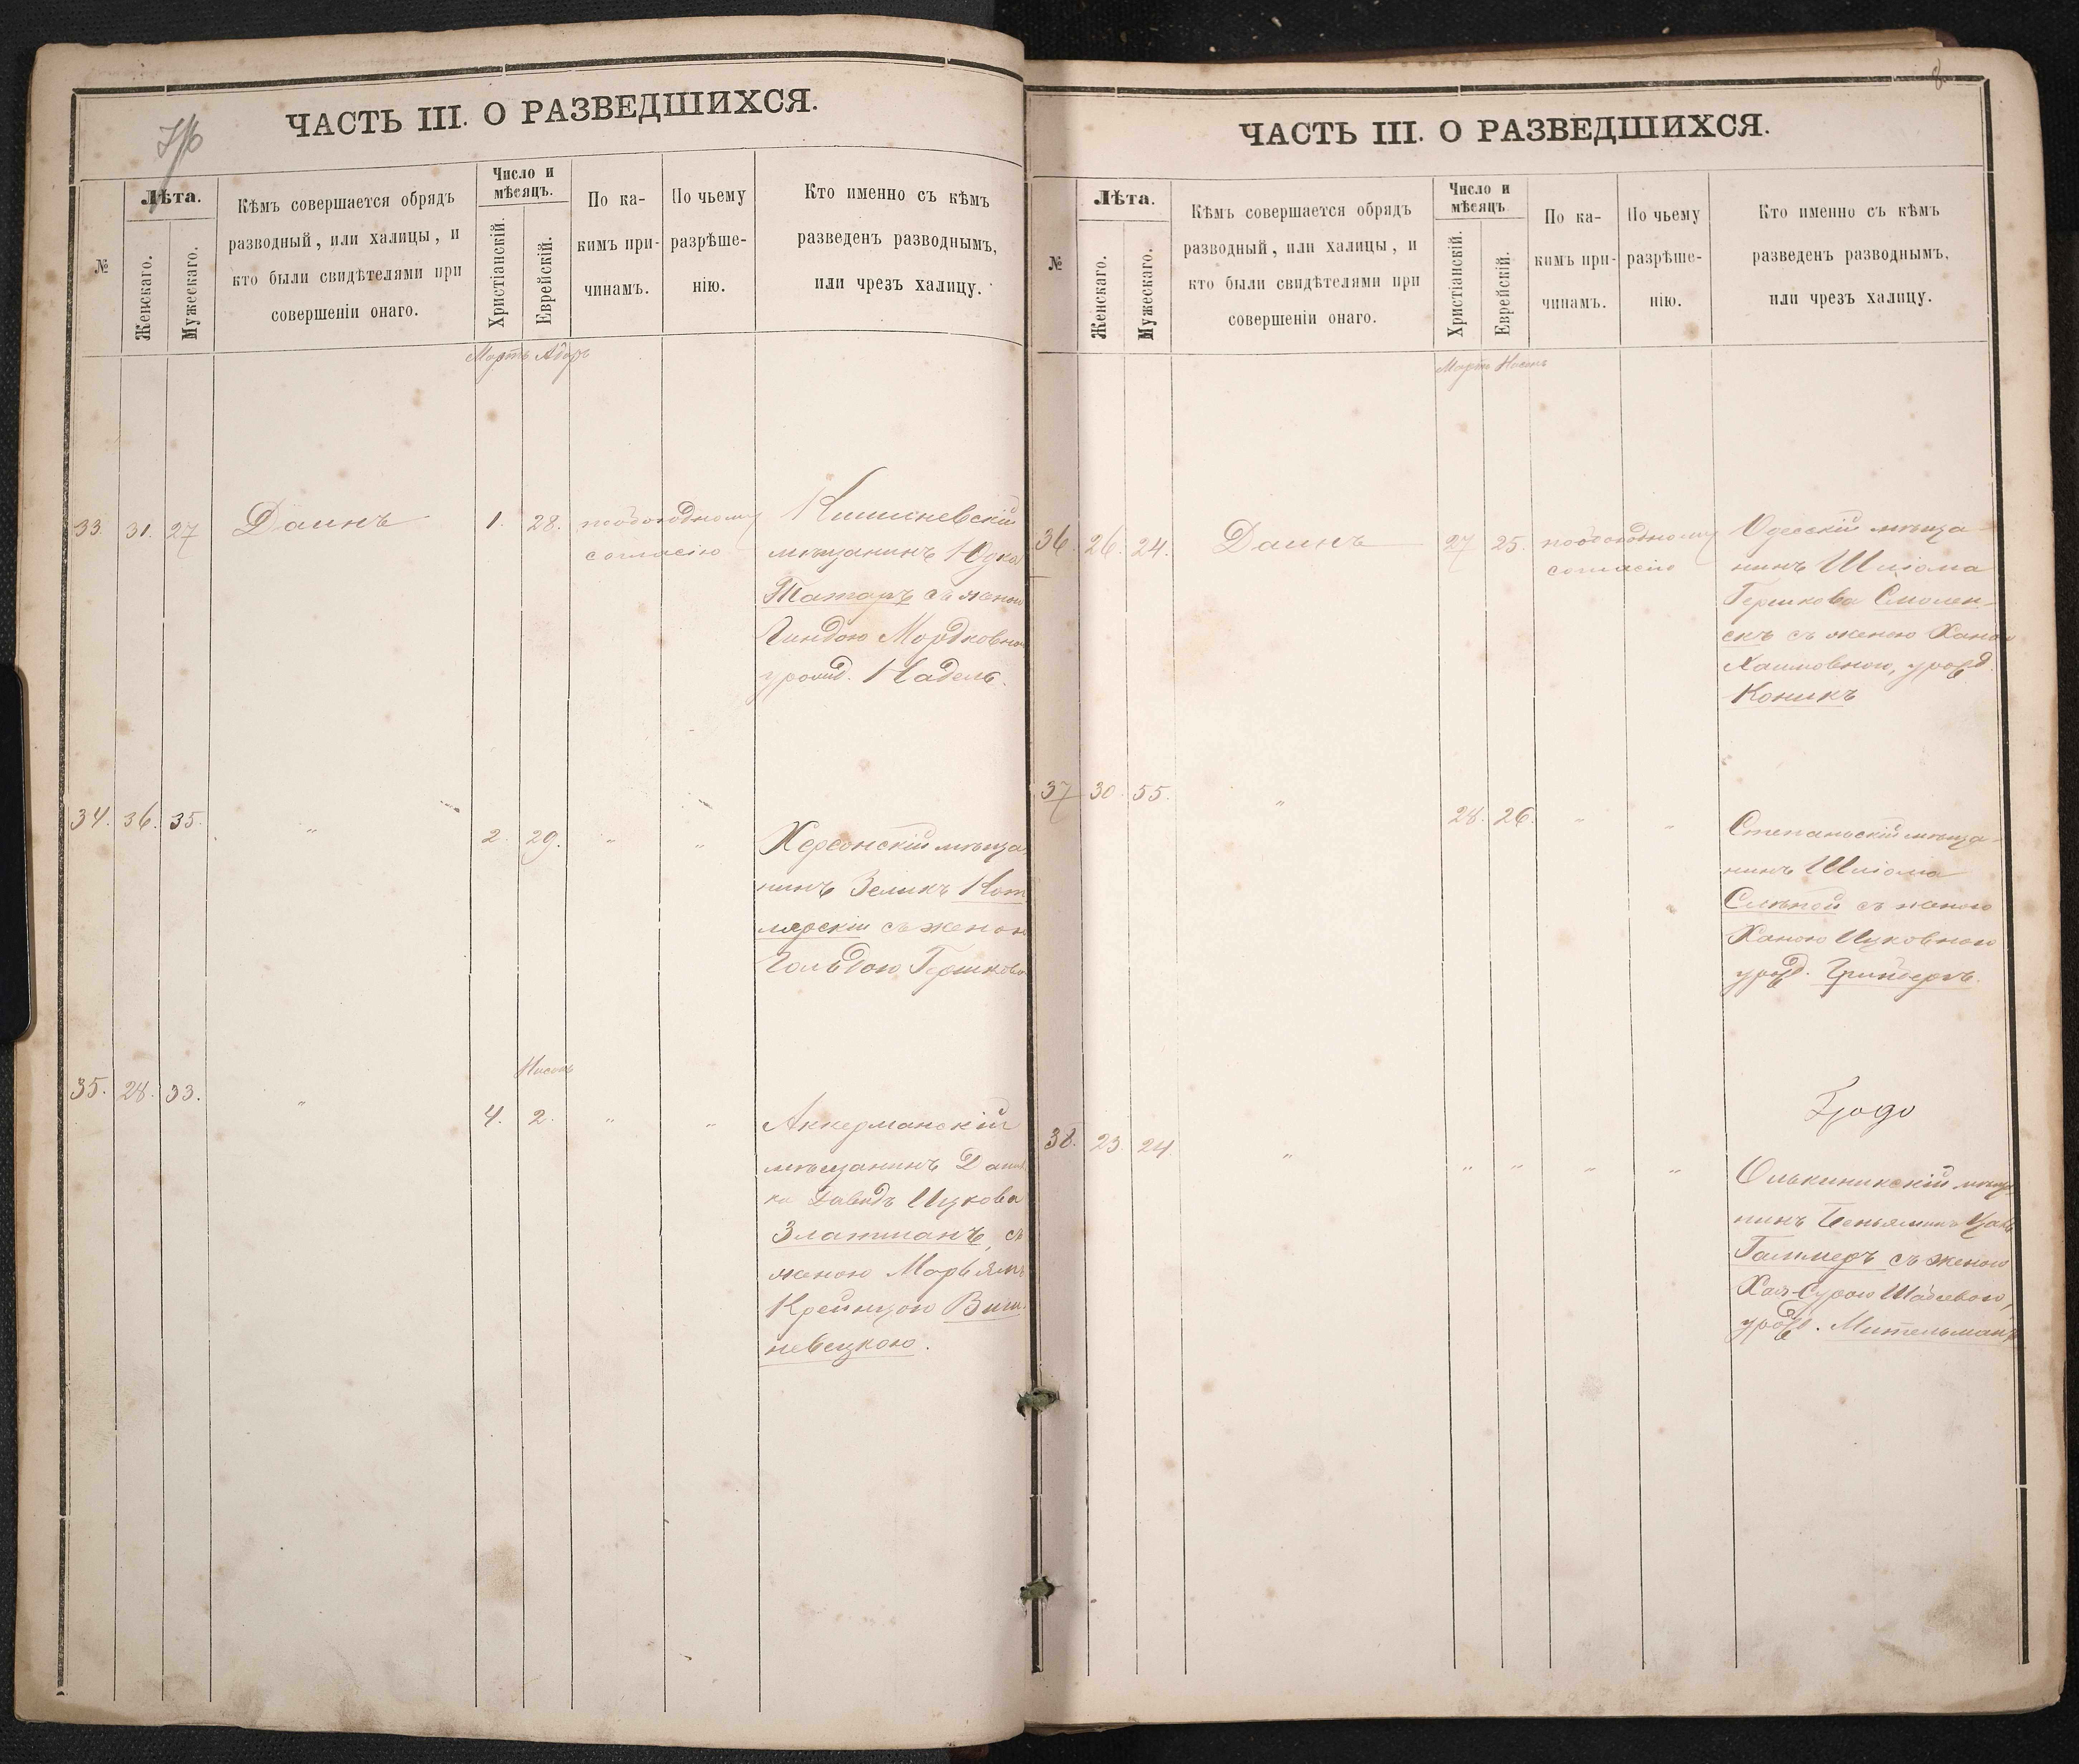 ЧАСТЬ III. О РАЗВЕДШИХСЯ.
№
Лѣта.
Женскаго.
Мужескаго.
Кѣмъ совершается обрядъ
разводный, или халицы, и
кто были свидѣтелями при
совершеніи онаго.
Число и
мѣсяцъ.
Христіанскій.
Еврейскій.
По ка-
кимъ при-
чинамъ.
По чьему
разрѣше-
нію.
Кто именно съ кѣмъ
разведенъ разводнымъ,
или чрезъ халицу.
Мартъ Адаръ
33. 31. 27 Даинъ 1. 28. пообоюдному
согласію
Кишиневскій
мѣщанинъ Юдко
Татаръ съ женою
Гиндою Мордковною
урожд. Надель.
34. 36. 35. " 2. 29. " "
Херсонскій мѣща-
нинъ Зеликъ Кот
лярскій съ женою
Гольдою Гершково
Нисонъ
35. 28. 33. " 4. 2. " "
Аккерманскій
мѣщанинъ
Давидъ Ицкова
Златманъ, съ
женою Марьямъ
Крейнцою Виш-
невецкою.
8
ЧАСТЬ III. О РАЗВЕДШИХСЯ.
№
Лѣта.
Женскаго.
Мужескаго.
Кѣмъ совершается обрядъ
разводный, или халицы, и
кто были свидѣтелями при
совершеніи онаго.
Число и
мѣсяцъ
Христіанскій.
Еврейскій.
По ка-
кимъ при-
чинамъ.
По чьему
разрѣше-
нію.
Кто именно съ кѣмъ
разведенъ разводнымъ,
или чрезъ халицу.
Мартъ Нисонъ
36. 26. 24. Даинъ 27 25. пообоюдному
согласію
Одесскій мѣща-
нинъ Шліома
Гершкова Смолен-
скъ съ женою Ханою
Хаимовною, урожд.
Коникъ
37 30. 55. " 28. 26. " "
Степаньскій мѣща-
нинъ Шліома
Слѣпой съ женою
Ханою Ицковною
урожд. Гринбергъ.
38. 23. 24 " " " " "
Олькиникскій мѣща
нинъ Беньяминъ
съ женою
Хая-Сурою
урожд. Мительманъ